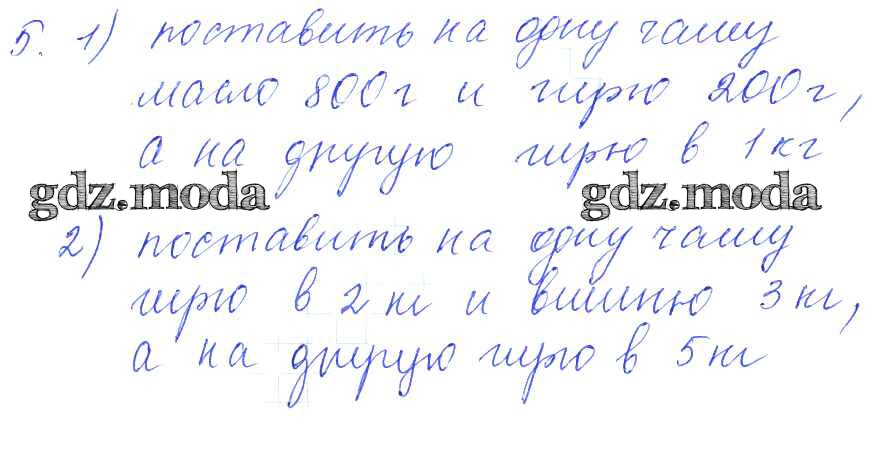 5. 1) поставить на одну чашу
масло 800г и гирю 200г,
а на другую гирю в 1 кг
gdz.moda gdz.moda
2) поставить на одну чашу
гирю в 2 кг и вишню 3 кг,
а на другую гирю в 5 кг